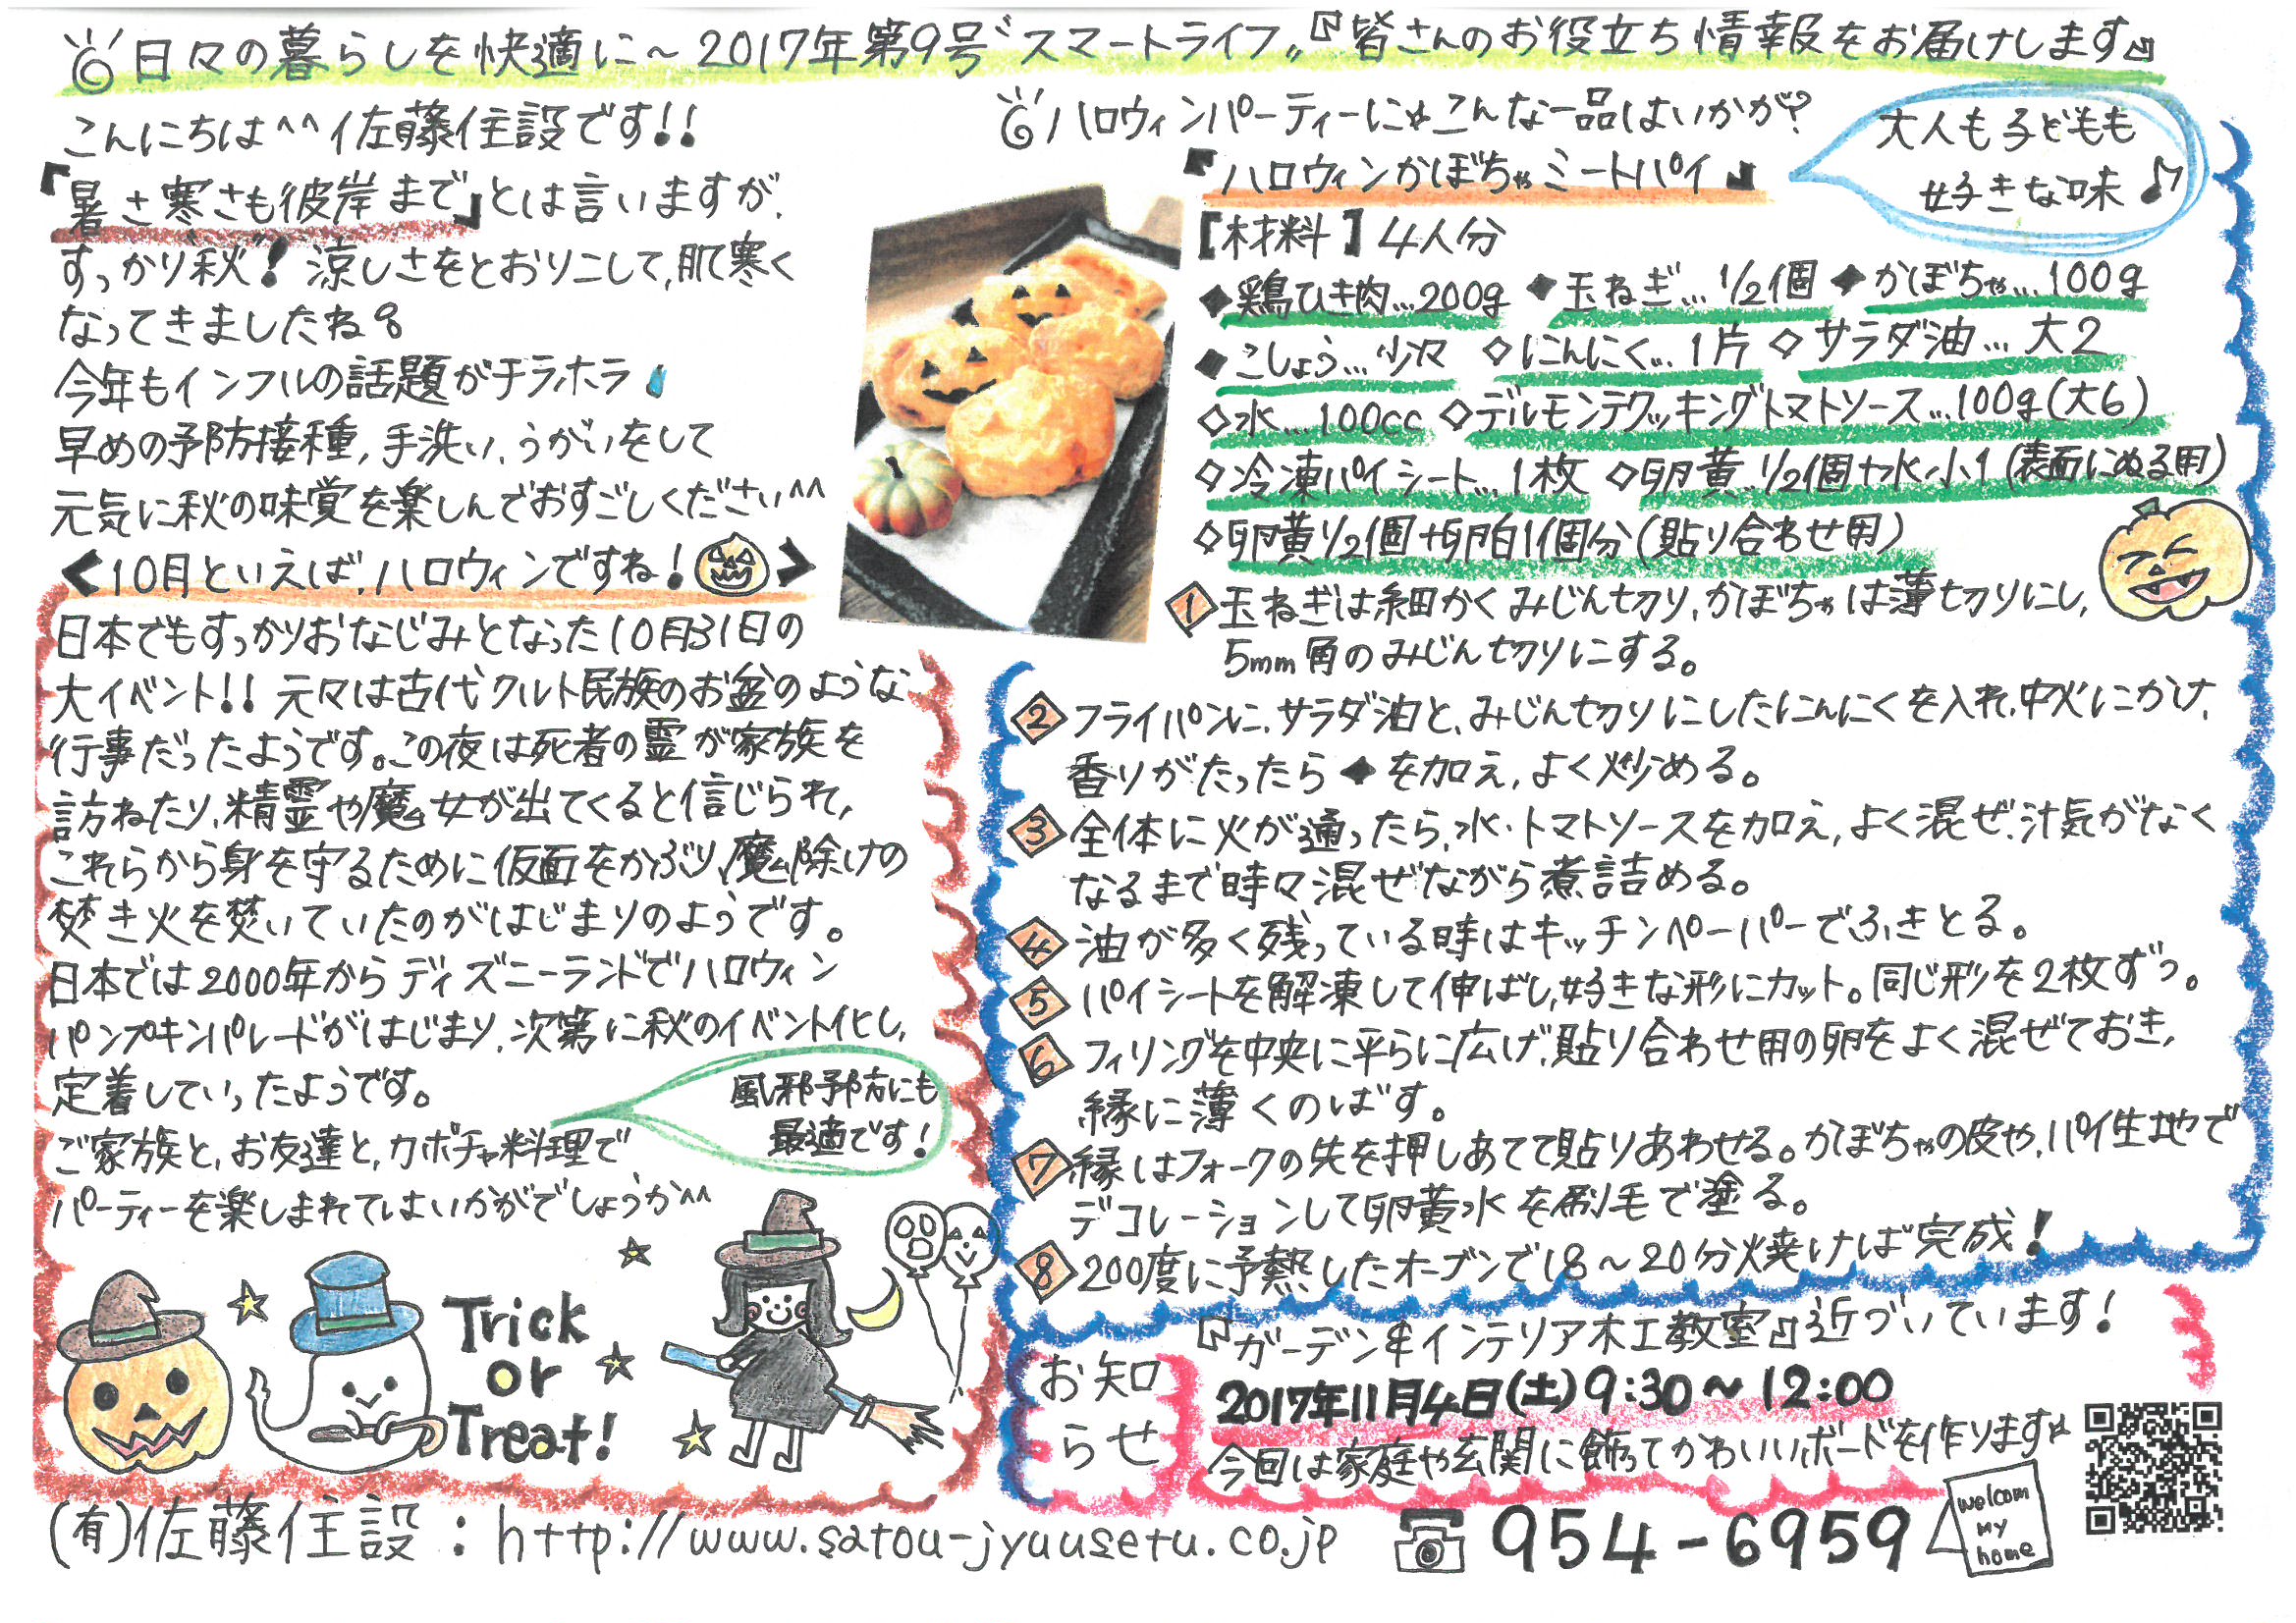 日々の暮らしを快適に～2017年第9号〝スマートライフ〟『皆さんのお役立ち情報をお届けします』
こんにちは^^佐藤住設です!!
『暑さ寒さも彼岸まで』とは言いますが、
すっかり秋！涼しさをとおりこして、肌寒く
なってきましたね。
今年もインフルの話題がチラホラ
早めの予防接種，手洗い、うがいをして
元気に秋の味覚を楽しんでおすごしください^^
<10月といえば、ハロウィンですね！>
日本でもすっかりおなじみとなった10月31日の
大イベント!!元々は古代ケルト民族のお盆のような
行事だったようです。この夜は死者の霊が家族を
訪ねたり、精霊や魔女が出てくると信じられ，
これらから身を守るために仮面をかぶり、魔除けの
焚き火を焚いていたのがはじまりのようです。
日本では2000年からディズニーランドでハロウィン
パンプキンパレードがはじまり、次第に秋のイベント化し，
定着していったようです。
風邪予防にも
最適です！
ご家族と，お友達と，カボチャ料理で
パーティーを楽しまれてはいかがでしょうか^^
Trick
or
Treat!
ハロウィンパーティーに☆こんな一品はいかが？
『ハロウィンかぼちゃミートパイ』
大人も子どもも
好きな味♪
【材料】4人分
◆鶏ひき肉…200g ◆玉ねぎ…1/2個 ◆かぼちゃ…100g
◆こしょう…少々 ◇にんにく…1片 ◇サラダ油…大2
◇水…100cc ◇デルモンテクッキングトマトソース…100g(大6)
◇冷凍パイシート…1枚 ◇卵黄…1/2個+水小1(表面にぬる用)
◇卵黄1/2個+卵白1個分(貼り合わせ用)
1 玉ねぎは細かくみじん切り、かぼちゃは薄切りにし，
5mm角のみじん切りにする。
2 フライパンに、サラダ油と、みじん切りにしたにんにくを入れ、中火にかけ，
香りがたったら◆を加え，よく炒める。
3 全体に火が通ったら，水・トマトソースを加え，よく混ぜ、汁気がなく
なるまで時々混ぜながら煮詰める。
4 油が多く残っている時はキッチンペーパーでふきとる。
5 パイシートを解凍して伸ばし，好きな形にカット。同じ形を2枚ずつ。
6 フィリングを中央に平らに広げ、貼り合わせ用の卵をよく混ぜておき，
縁に薄くのばす。
7 縁はフォークの先を押しあてて貼りあわせる。かぼちゃの皮や，パイ生地で
デコレーションして卵黄水を刷毛で塗る。
8 200度に予熱したオーブンで18～20分焼けば完成！
お知
らせ
『ガーデン&インテリア木工教室』近づいています！
2017年11月4日(土)9:30～12:00
今回は家庭や玄関に飾ってかわいいボードを作ります☆
welcom
my
home
(有)佐藤住設：http://www.satou-jyuusetu.co.jp ☎954-6959